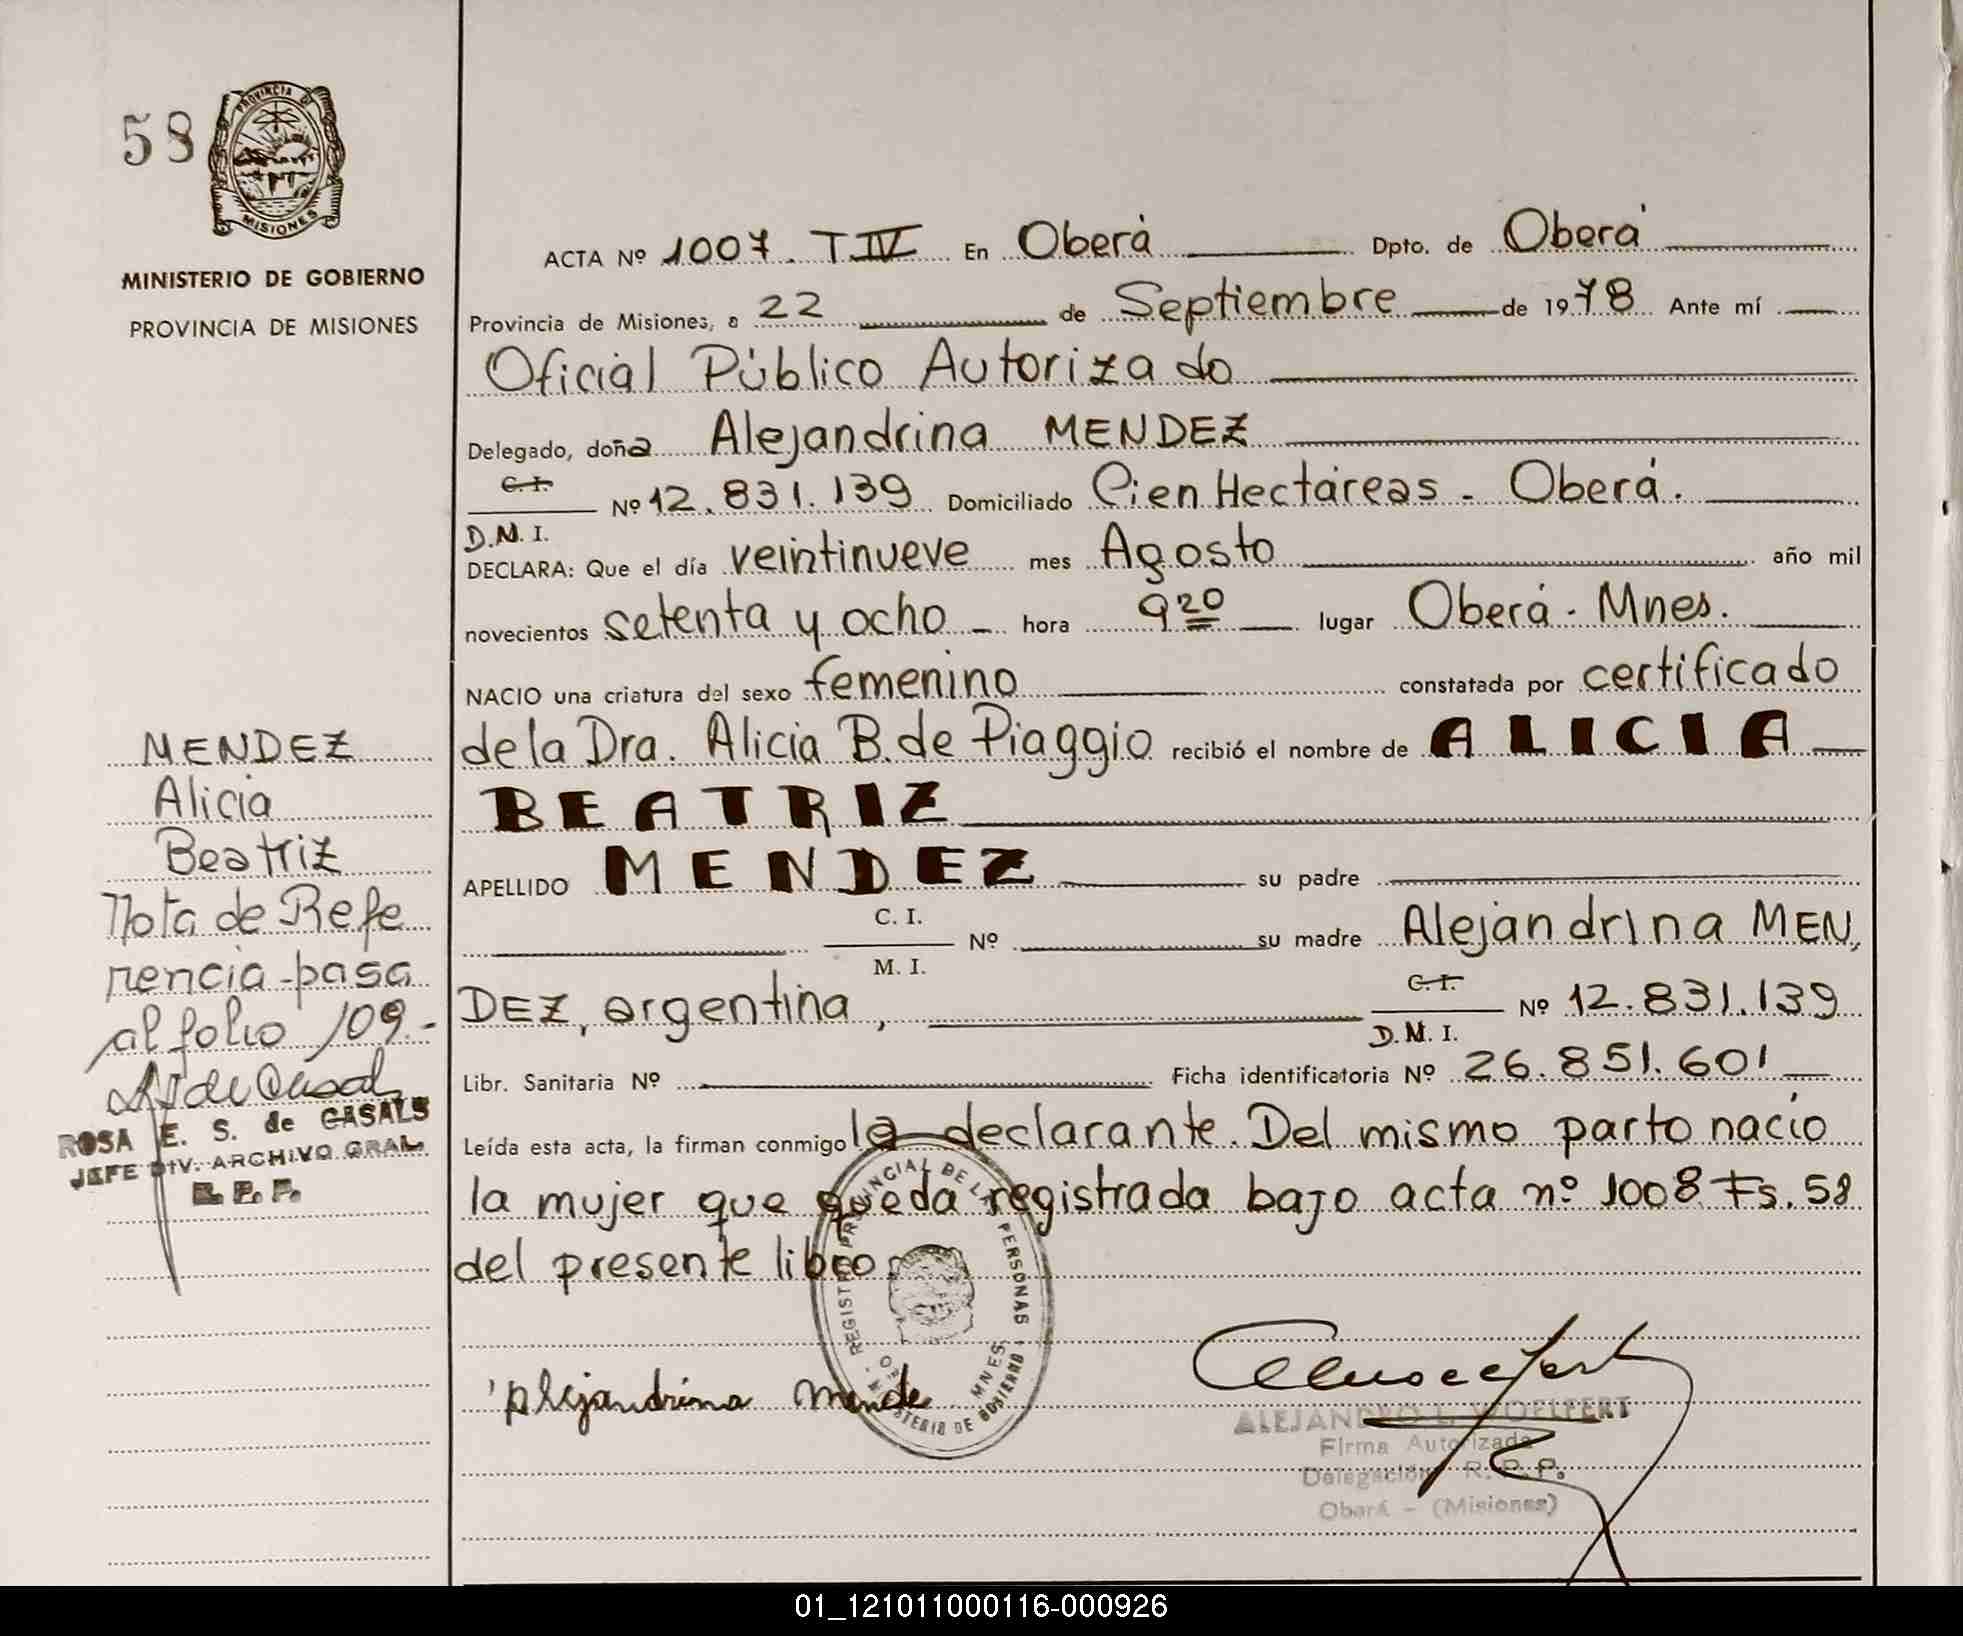 58
PROVINCIA DE
MISIONES
MINISTERIO DE GOBIERNO
PROVINCIA DE MISIONES
ACTA Nº 1007. T IV En Oberá Dpto. de Oberá
Provincia de Misiones, a 22 de Septiembre de 1978 Ante mí
Oficial Público Autorizado
Delegado, doña Alejandrina MENDEZ
C.I.
Nº 12.831.139 Domiciliado Cien Hectáreas - Oberá.
D.M.I.
DECLARA: Que el día veintinueve mes Agosto año mil
novecientos setenta y ocho hora 9 20 lugar Oberá - Mnes.
NACIO una criatura del sexo femenino constatada por certificado
de la Dra. Alicia B. de Piaggio recibió el nombre de ALICIA
BEATRIZ
APELLIDO MENDEZ su padre
C. I.
Nº su madre Alejandrina MEN,
M. I.
DEZ, argentina,
C.I.
Nº 12.831.139
D.M.I.
Libr. Sanitaria Nº Ficha identificatoria Nº 26.851.601
Leída esta acta, la firman conmigo la declarante. Del mismo parto nacio
la mujer que queda registrada bajo acta nº 1008 Fs. 58
del presente libro.
MENDEZ
Alicia
Beatriz
Nota de Refe
rencia - pasa
al folio 109.-
ROSA E. S. de CASALS
JEFE DIV. ARCHIVO GRAL.
R. P. P.
REGISTRO PROVINCIAL DE LAS PERSONAS
MNES.
MINISTERIO DE GOBIERNO
Alejandrina Mende
ALEJANDRO L. WOELFERT
Firma Autorizada
Delegación R. P. P.
Oberá - (Misiones)
01_121011000116-000926